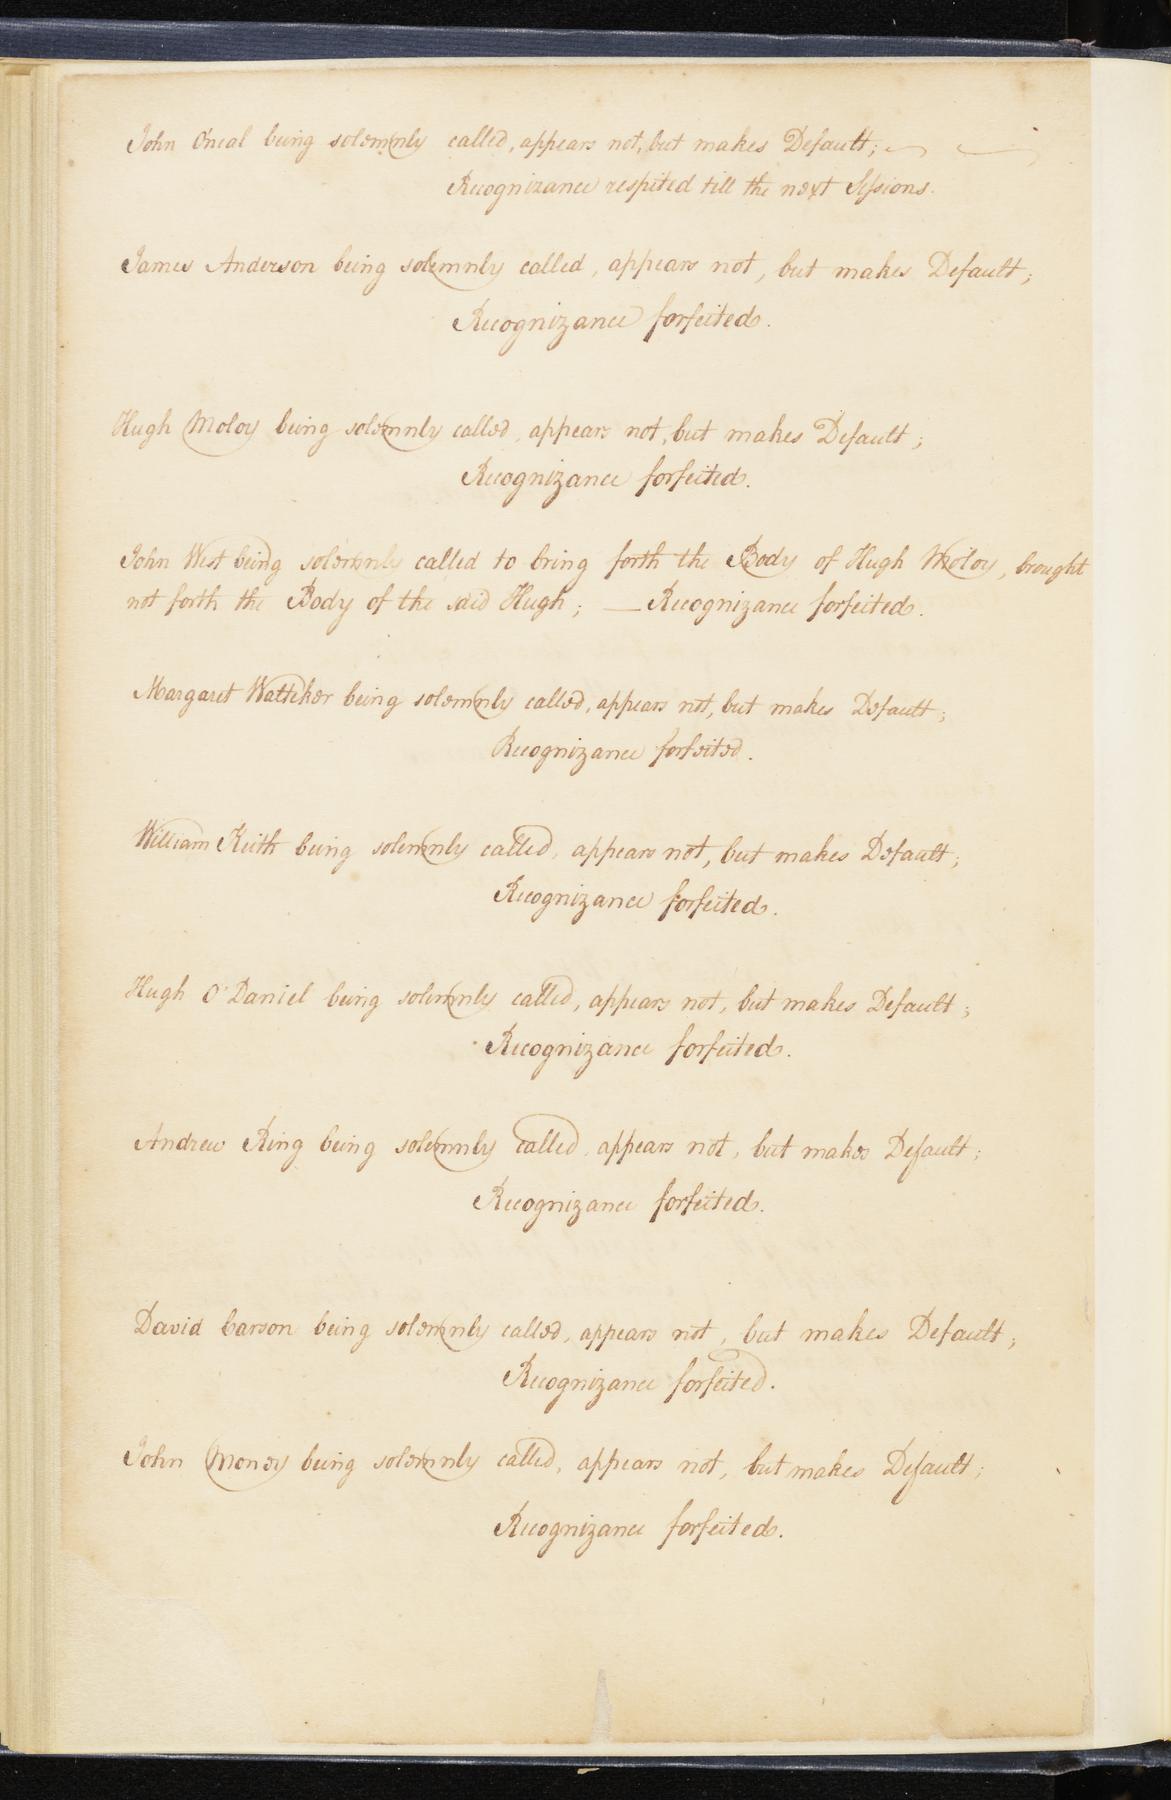 John Oneal being solemnly called, appears not, but makes Default;
Recognizance respited till the next Sessions.
James Anderson being solemnly called, appears not, but makes Default;
Recognizance forfeited.
Hugh Moloy being solemnly called, appears not, but makes Default;
Recognizance forfeited.
John West being solemnly called to bring forth the Body of Hugh Moloy, brought
not forth the Body of the said Hugh; — Recognizance forfeited.
Margaret Watteker being solemnly called, appears not, but makes Default;
Recognizance forfeited.
William Keith being solemnly called, appears not, but makes Default;
Recognizance forfeited.
Hugh O'Daniel being solemnly called, appears not, but makes Default;
Recognizance forfeited.
Andrew King being solemnly called, appears not, but makes Default;
Recognizance forfeited.
David Carson being solemnly called, appears not, but makes Default;
Recognizance forfeited.
John Money being solemnly called, appears not, but makes Default;
Recognizance forfeited.